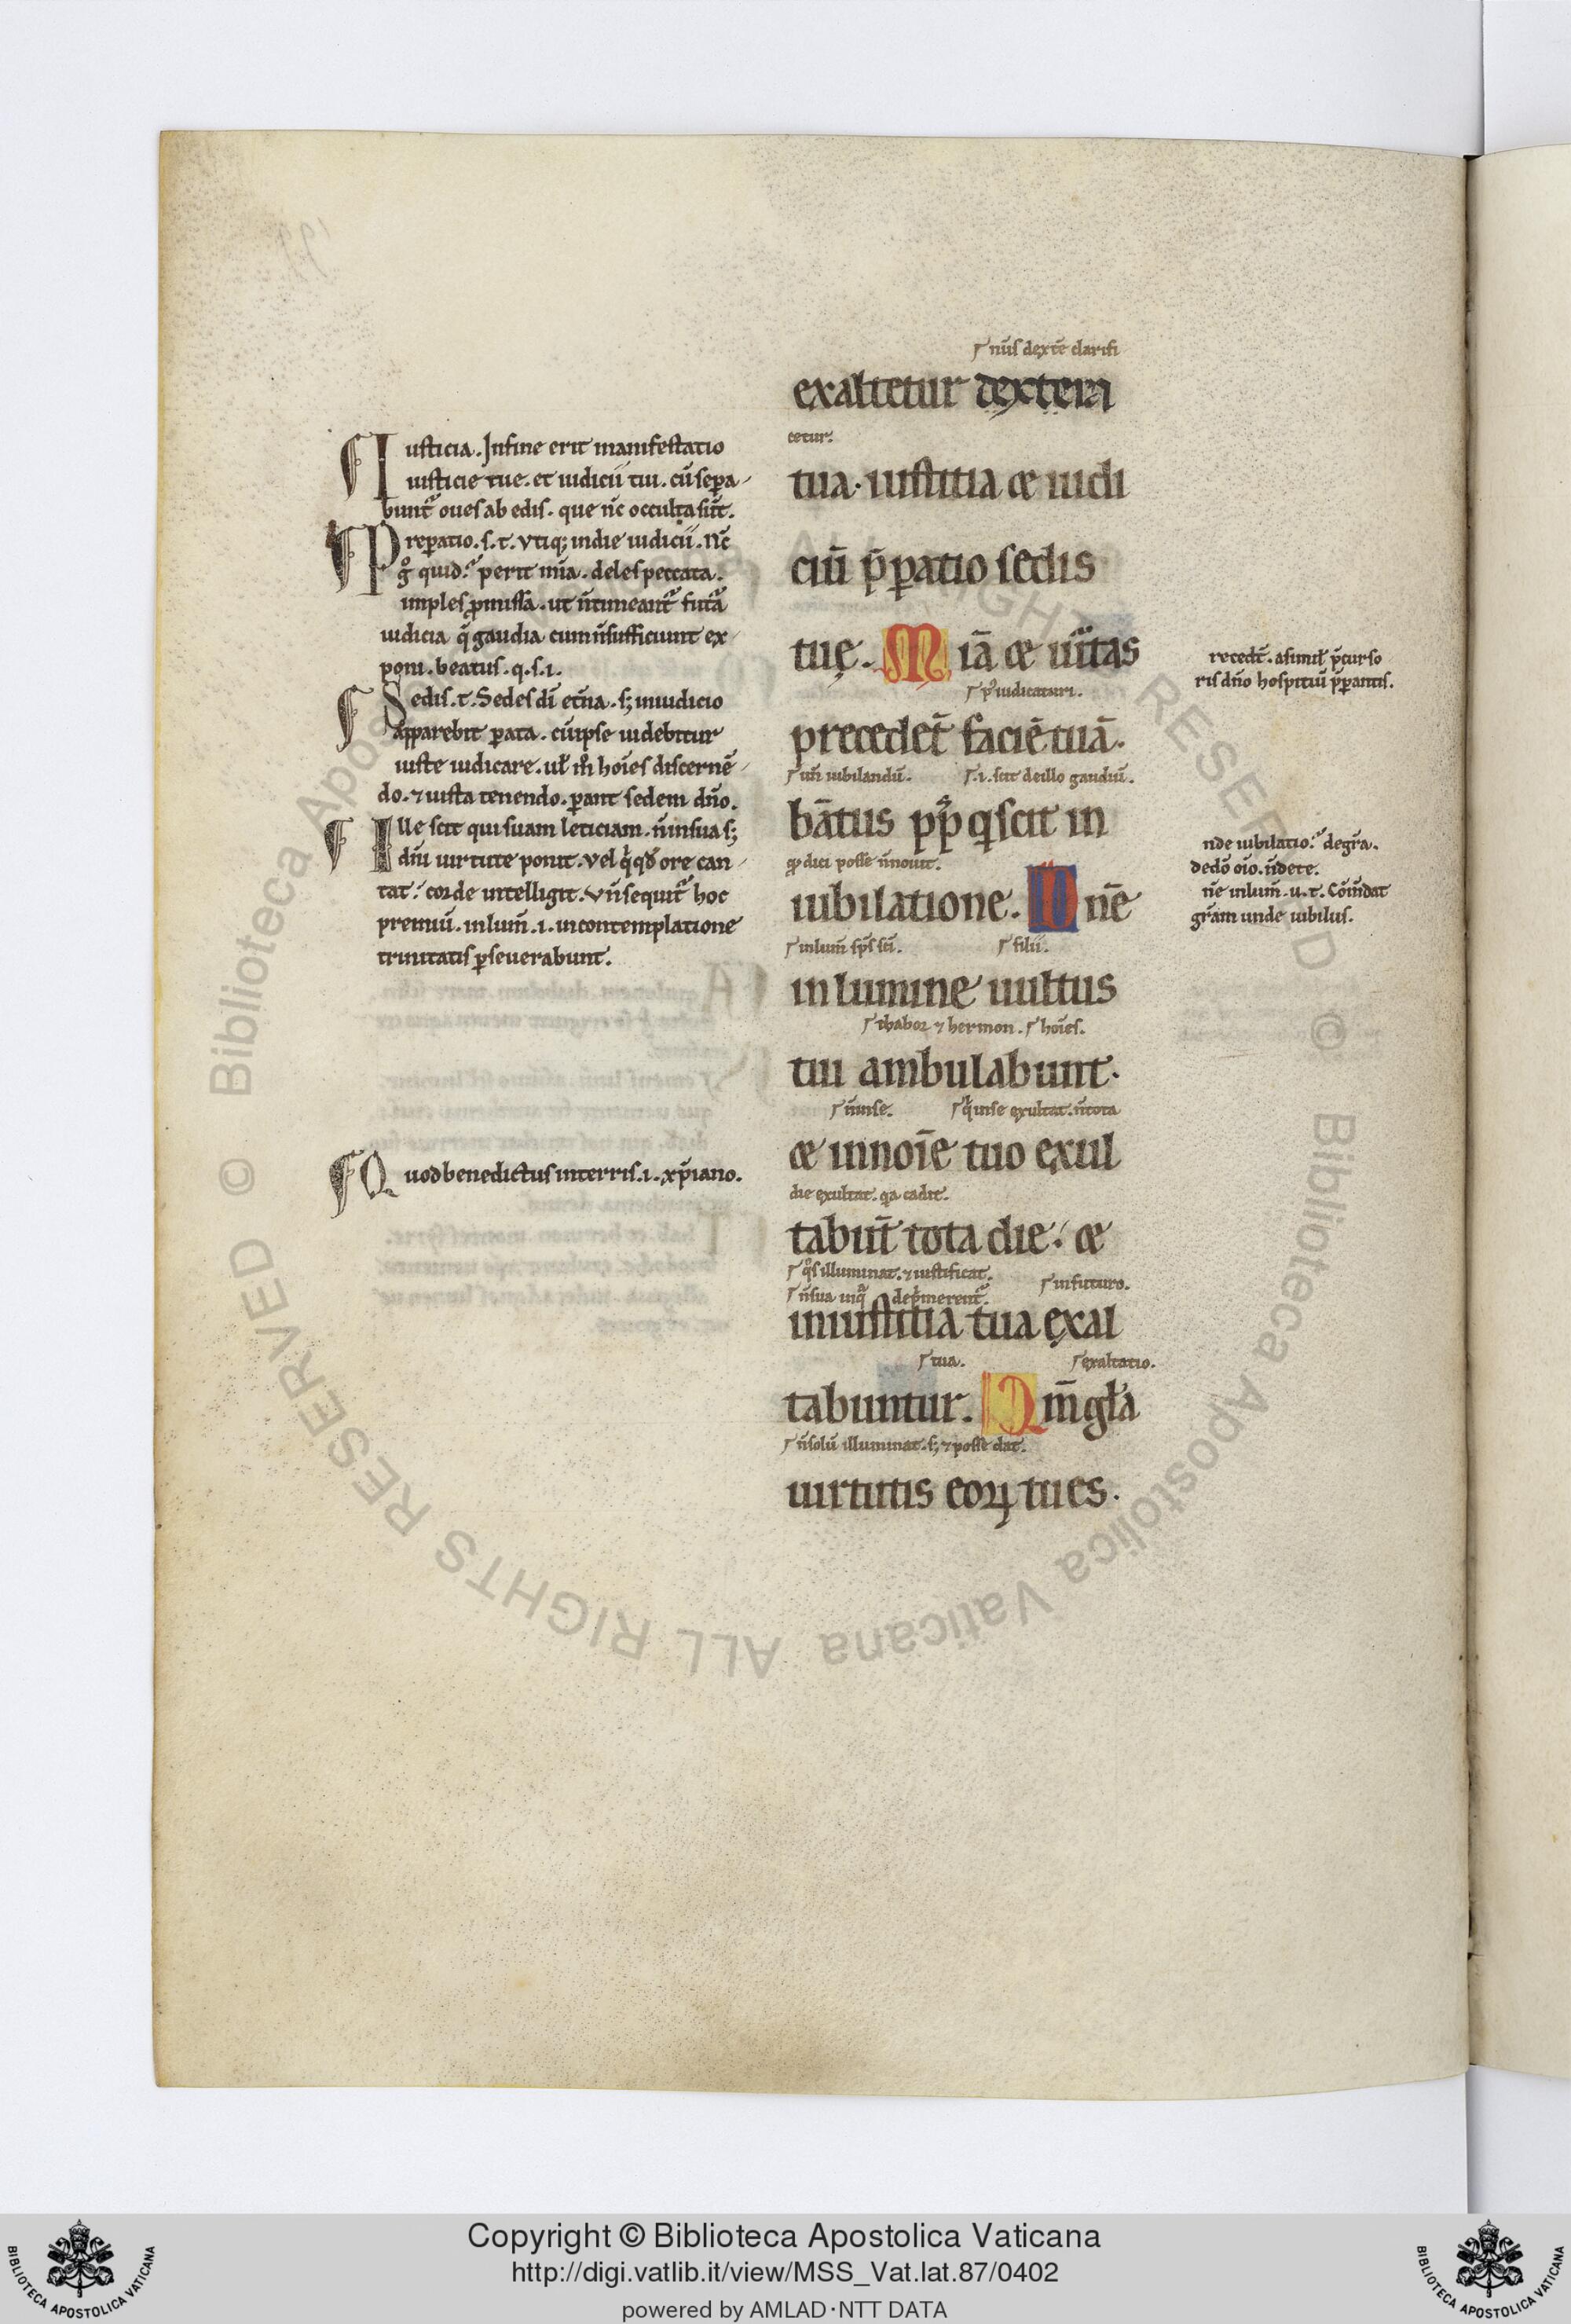 nũs dexte᷑ clarifi
exaltetur dextera
cetur.
tua. iustitia & iudi
ciũ p̃paratio sedis
tuę. Mia᷑ & uitas
p̃ iudicaturi.
precedet᷑ faciẽ tuã.
uñ iubilandũ. .i. scit de illo gaudiũ.
bãtus pp̃ q scit in
dici posse ñ nouit.
iubilatione. Dñe
in lum̃ sp̃s sc̃i. filii.
in lumine uultus
thabor ⁊ hermon. hoĩes.
tui ambulabunt.
ñ in se. q̃ in se exultat. ñ tota
& in noĩe tuo exul
die exultat. qa cadit.
tabũt tota die. &
q̊s illuminat. ⁊ iustificat. in futuro.
ñ sua
in iustitia tua exal
tua. exaltatio.
tabuntur. Qm̃ gła
ñ solũ illuminat. s; ⁊ posse dat.
uirtutis eoꝝ tu es.
Iusticia. In fine erit manifestatio
iusticie tue. et iudicii tui. cũ sepa
bunt᷑ oues ab edis. que nc̃ occulta sũt.
Preꝑatio. s. t. vtiq; in die iudicii. Nc̃
g̊ quid. perit mĩa. deles peccata.
imples ꝓmissa. ut ñ timeant᷑ fut᷑a
iudicia q̃ gaudia cum ñ sufficiunt ex
poni. beatus. q. s. i.
Sedis. t. Sedes dĩ et᷑na. s; in iudicio
apparebit ꝑata. cũ ipse uidebitur
iuste iudicare. uł m̊ hoĩes discernẽ
do. ⁊ iusta tenendo. ꝑant sedem dño.
Ille scit qui suam leticiam. ñ in sua s;
diũ uirtute ponit. vel q̃ qđ ore can
tat. corde intelligit. vñ sequit᷑ hoc
premiũ. in lum̃. i. in contemplatione
trinitatis ꝑseuerabunt.
Quod benedictus in terris. i. xp̃iano.
recedt᷑. a simił p̃curso
ris dño hospitiũ p̃ꝑantis.
nde iubilatio. de gr̃a.
de dõ oĩo. ñ de te.
ñe in lum̃. u. t. Cõm̃dat
gr̃am unde iubilus.
Copyright © Biblioteca Apostolica Vaticana
http://digi.vatlib.it/view/MSS_Vat.lat.87/0402
powered by AMLAD·NTT DATA
BIBLIOTECA APOSTOLICA VATICANA
BIBLIOTECA APOSTOLICA VATICANA
© Biblioteca Apostolica Vaticana ALL RIGHTS RESERVED © Biblioteca Apostolica Vaticana ALL RIGHTS RESERVED